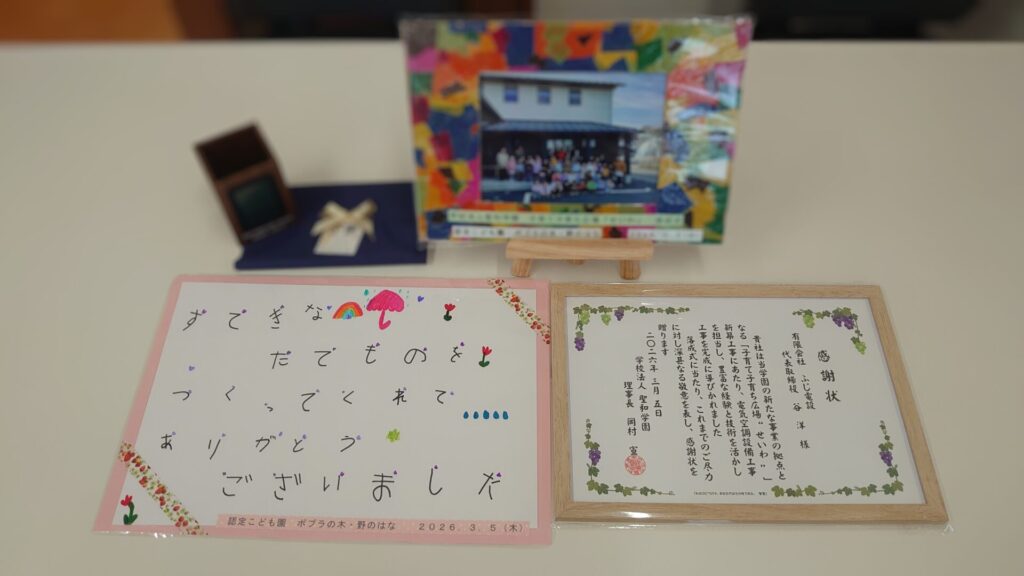 すてきな
たてものを
つくってくれて
ありがとう
ございました
認定こども園 ポプラの木・野のはな 2026.3.5(木)
感謝状
有限会社 ふじ電設
代表取締役 谷 洋 様
貴社は当学園の新たな事業の拠点と
なる「子育て子育ち広場“せいわ”」
新築工事にあたり、電気空調設備工事
を担当し、豊富な経験と技術を活かし
工事を完成に導びかれました
落成式に当たり、これまでのご尽力
に対し深甚なる敬意を表し、感謝状を
贈ります
二〇二六年 三月 五日
学校法人 聖和学園
理事長 岡村 宣